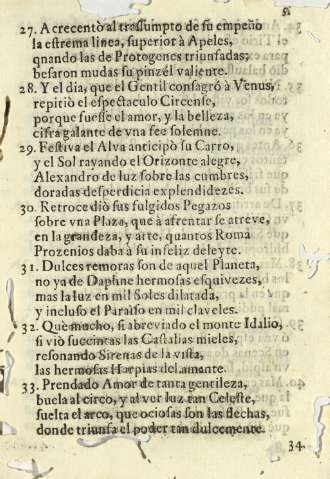 27. Acrecentò al trassumpto de su empeño
la estrema linea, superior à Apeles,
quando las de Protogenes triunfadas,
besaron mudas su pinzél valiente.
28. Y el dia, que el Gentil consagrò à Venus,
repitiò el espectaculo Circense,
porque fuesse el amor, y la belleza,
cifra galante de vna fee solemne.
29. Festiva el Alva anticipò su Carro,
y el Sol rayando el Orizonte alegre,
Alexandro de luz sobre las cumbres,
doradas desperdicia explendidezes.
30. Retrocediò sus fulgidos Pegazos
sobre vna Plaza, que à afrentar se atreve,
en la grandeza, y arte, quantos Roma
Prozenios daba à su infeliz deleyte.
31. Dulces remoras son de aquel Planeta,
no ya de Daphne hermosas esquivezes,
mas la luz en mil Soles dilatada,
y incluso el Paraiso en mil claveles.
32. Què mucho, si abreviado el monte Idalio,
si viò succintas las Castalias mieles,
resonando Sirenas de la vista,
las hermosas Harpias del amante.
33. Prendado Amor de tanta gentileza,
buela al circo, y al ver luz tan Celeste,
suelta el arco, que ociosas son las flechas,
donde triunfa el poder tan dulcemente.
34.